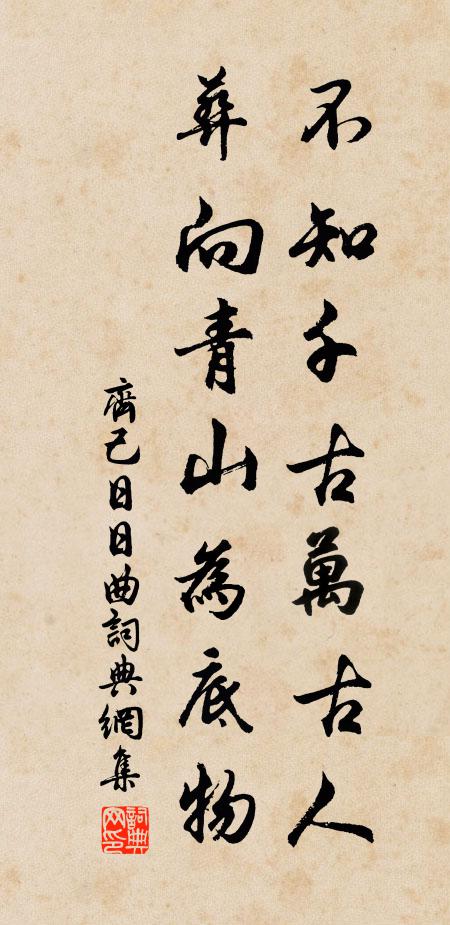 不知千古萬古人
葬向青山為底物
齊己日日曲詞典網集
詞典网印